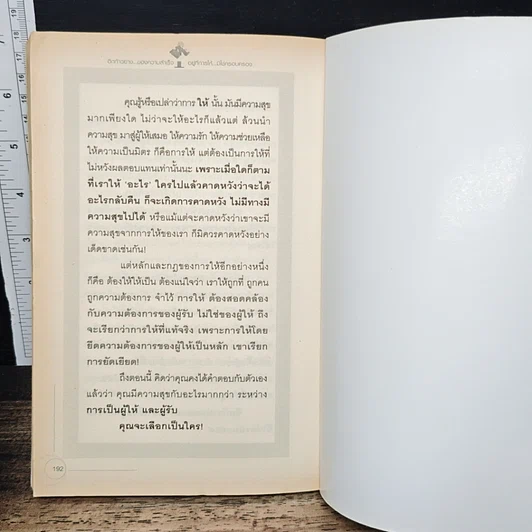 คุณรู้หรือเปล่าว่าการ ให้ นั้น มันมีความสุข
มากเพียงใด ไม่ว่าจะให้อะไรก็แล้วแต่ ล้วนนำ
ความสุข มาสู่ผู้ให้เสมอ ให้ความรัก ให้ความช่วยเหลือ
ให้ความเป็นมิตร ก็คือการให้ แต่ต้องเป็นการให้ที่
ไม่หวังผลตอบแทนเท่านั้นนะ เพราะเมื่อใดก็ตาม
ที่เราให้ 'อะไร' ใครไปแล้วคาดหวังว่าจะได้
อะไรกลับคืน ก็จะเกิดการคาดหวัง ไม่มีทางมี
ความสุขไปได้ หรือแม้แต่จะคาดหวังว่าเขาจะมี
ความสุขจากการให้ของเรา ก็มิควรคาดหวังอย่าง
เด็ดขาดเช่นกัน!
แต่หลักและกฎของการให้อีกอย่างหนึ่ง
ก็คือ ต้องให้ให้เป็น ต้องแน่ใจว่า เราให้ถูกที่ ถูกคน
ถูกความต้องการ จำไว้ การให้ ต้องสอดคล้อง
กับความต้องการของผู้รับ ไม่ใช่ของผู้ให้ ถึง
จะเรียกว่าการให้ที่แท้จริง เพราะการให้โดย
ยึดความต้องการของผู้ให้เป็นหลัก เขาเรียก
การยัดเยียด!
ถึงตอนนี้ คิดว่าคุณคงได้คำตอบกับตัวเอง
แล้วว่า คุณมีความสุขกับอะไรมากกว่า ระหว่าง
การเป็นผู้ให้ และผู้รับ
คุณจะเลือกเป็นใคร!
192